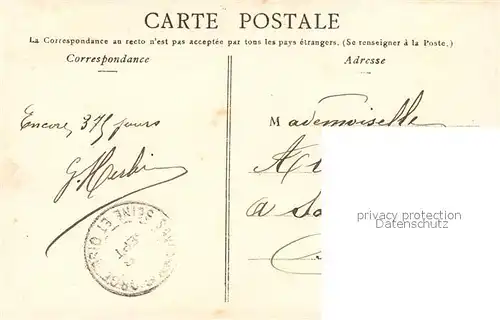 CARTE POSTALE
La Correspondance au recto n'est pas acceptée par tous les pays étrangers. (Se renseigner à la Poste.)
Correspondance
Adresse
Encore 375 jours
Mademoiselle
A
SEINE ET OISE
SEPT
privacy protection
Datenschutz
www.oldthing.de